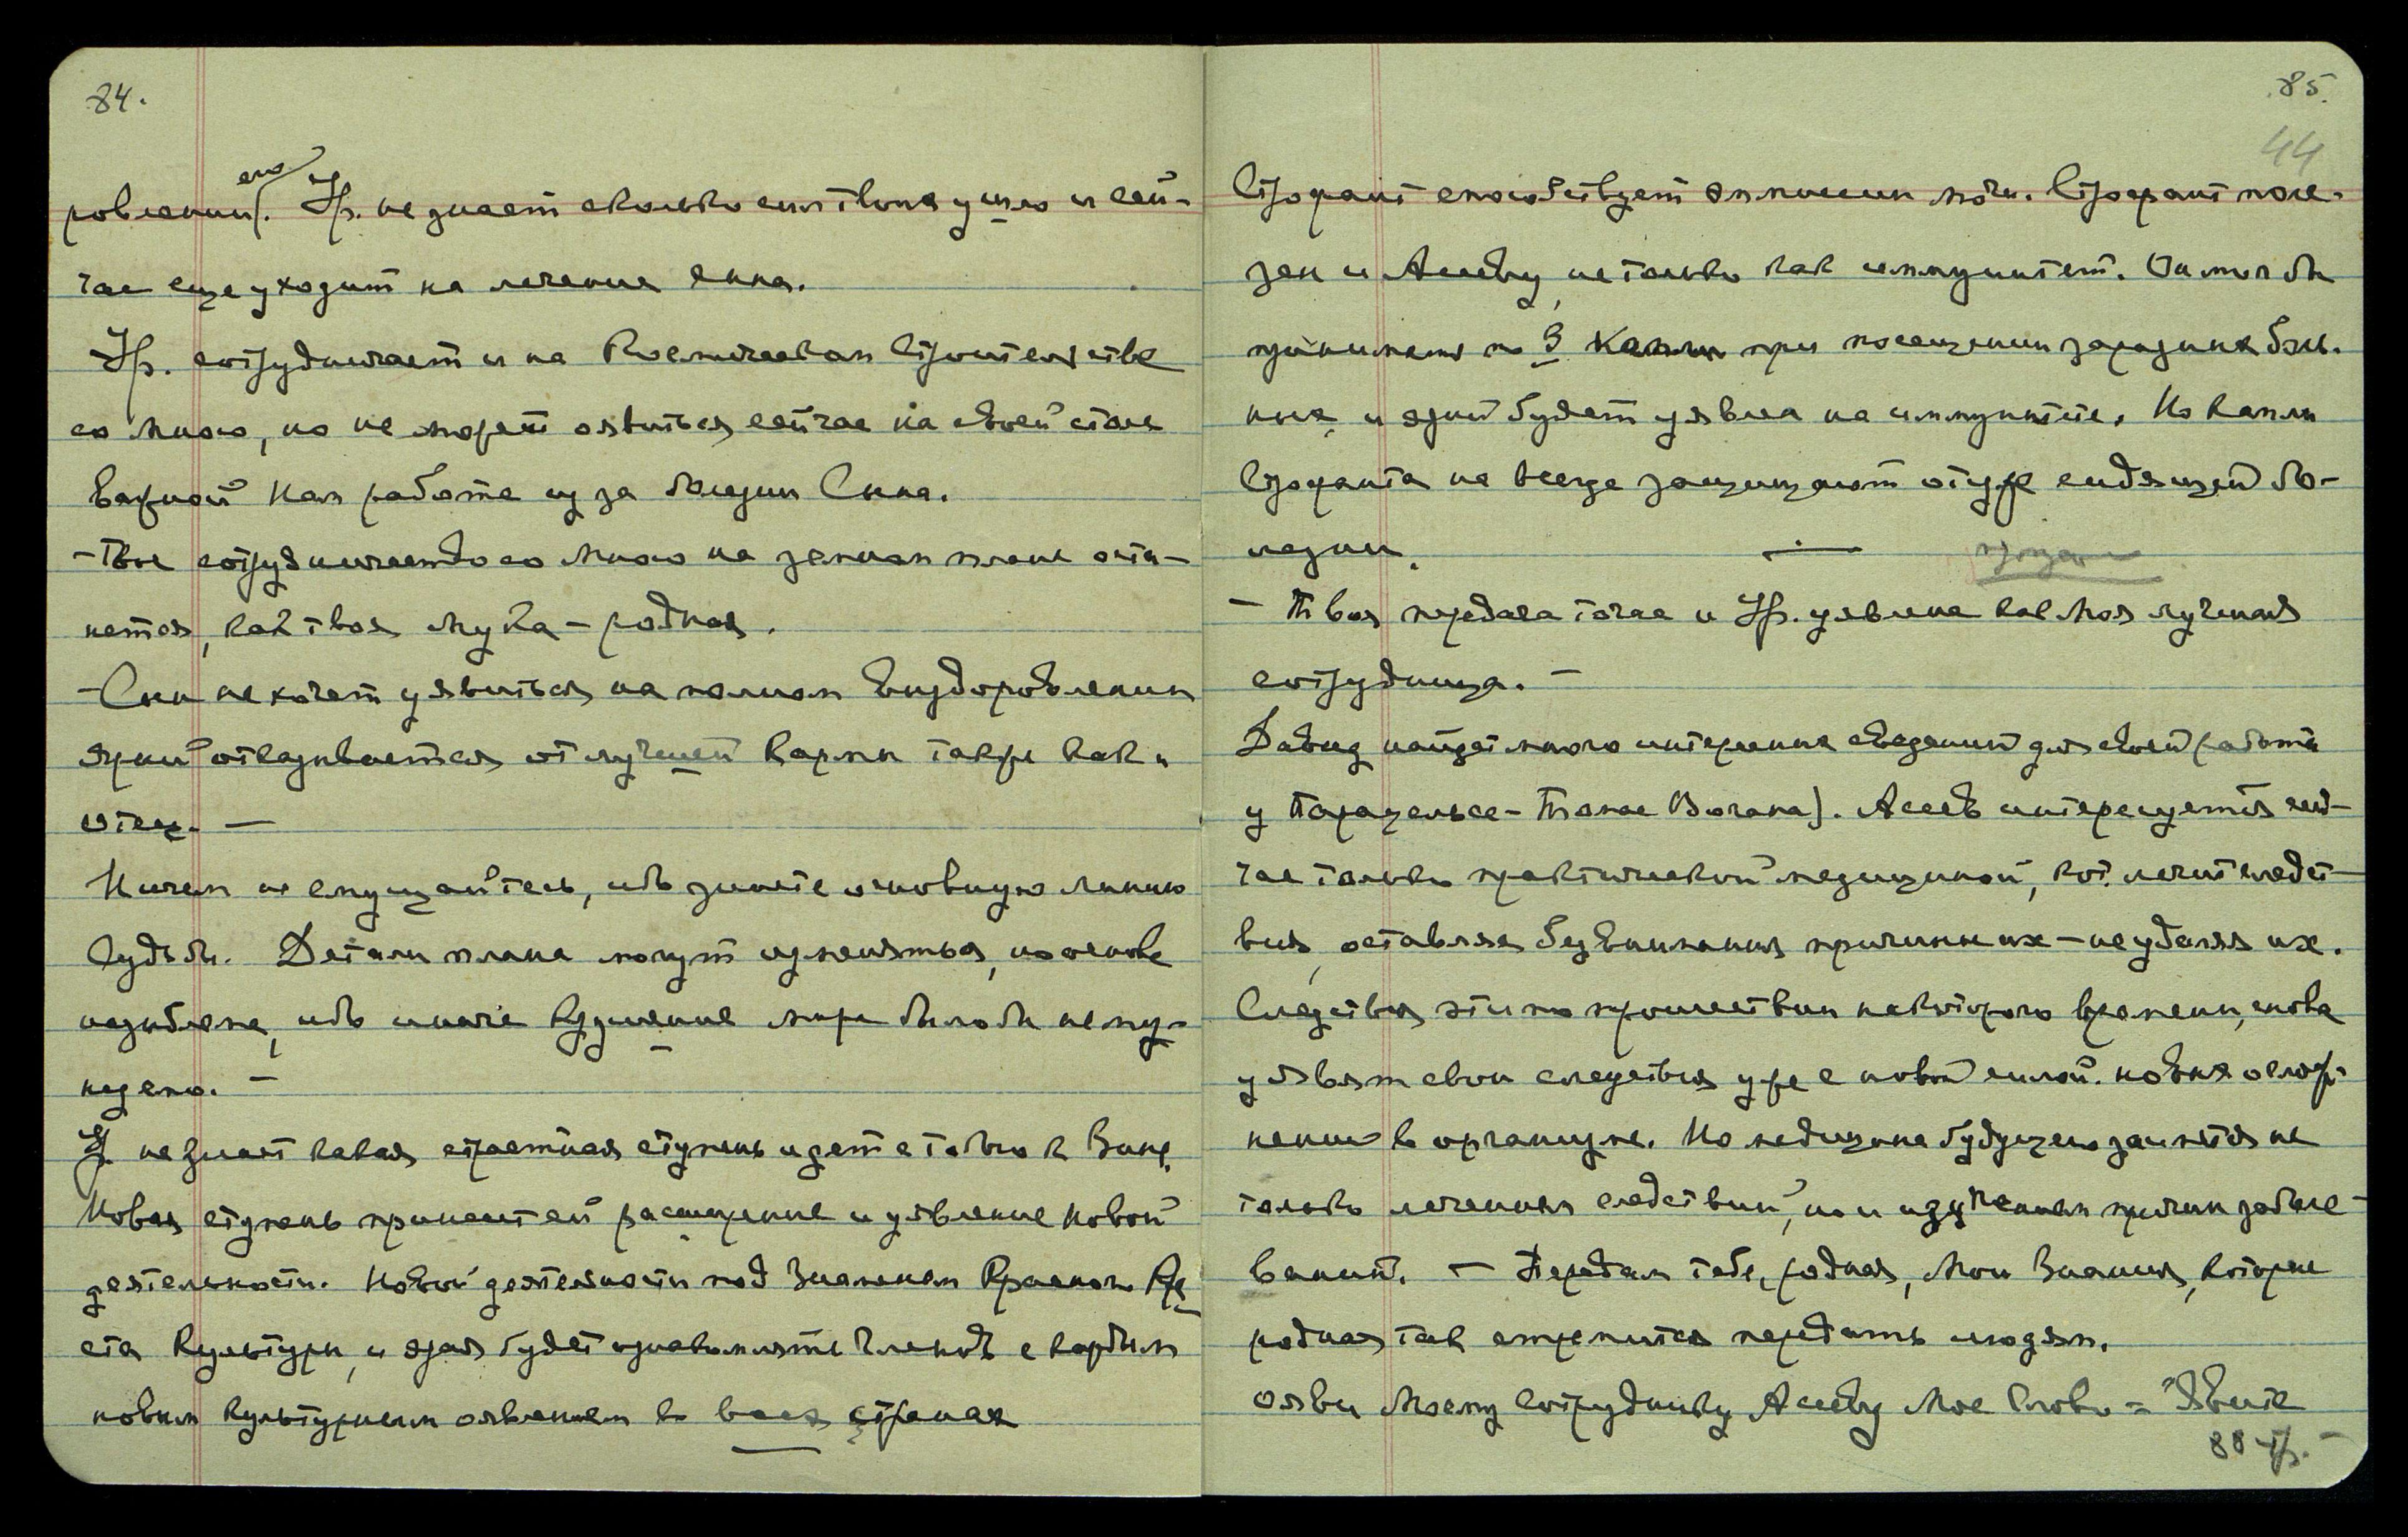 84.
его
ровлении). Ур. не знает сколько сил твоих ушло и сей-
час еще уходит на лечение сына.
Ур. сотрудничает и на Космическом Строительстве
со Мною, но не может оявиться сейчас на своей столь
важной Нам работе из за болезни Сына.
– Твое сотрудничество со Мною на земном плане оста-
нется, как твоя мука – родная.
– Сын не хочет уявиться на полном выздоровлении
отказывается от лучшей кармы также как и
отец. –
Ничем не смущайтесь, ибо знаете основную линию
Судьбы. Детали плана могут изменяться, но основа
незыблема, ибо иначе крушение мира было бы неми-
нуемо. –
не знает какая страстная ступень идет с тобою к Нам.
Новая ступень принесет ей расширение и уявление новой
деятельности. Новой деятельности под Знаменем Красного Кре-
ста Культуры, и будет ознакомлять членов с каждым
новым культурным оявлением во всех странах
85.
44
Строфант способствует эманации ночи. Строфант поле-
зен и Асееву, не только как иммунитет. Он мог бы
принимать по 3 капли при посещении заразных боль-
ных, и будет уявлен на иммунитете. Но капли
Строфанта не всегда защищают от уже сидящей бо-
лезни.
– Твоя передача тоже и Ур. уявлена как Моя лучшая
сотрудница. –
Давид найдет много интересных сведений для своей работы
у Парацельса – Томас Вогана). Асеев интересуется сей-
час только практической медициной, кот. лечит следст-
вия, оставляя без внимания причины их – не удаляя их.
Следствия эти по прошествии некоторого времени, снова
уявят свои следствия уже с новой силой. новых ослож-
нений в организме. Но медицина будущего займется не
только лечением следствий, но и изучением причин заболе-
ваний. – Передам тебе, родная, Мои Знания, которые
родная так стремится передать людям.
Ояви Моему Сотруднику Асееву Мое Слово – "Явите
88 стр. –